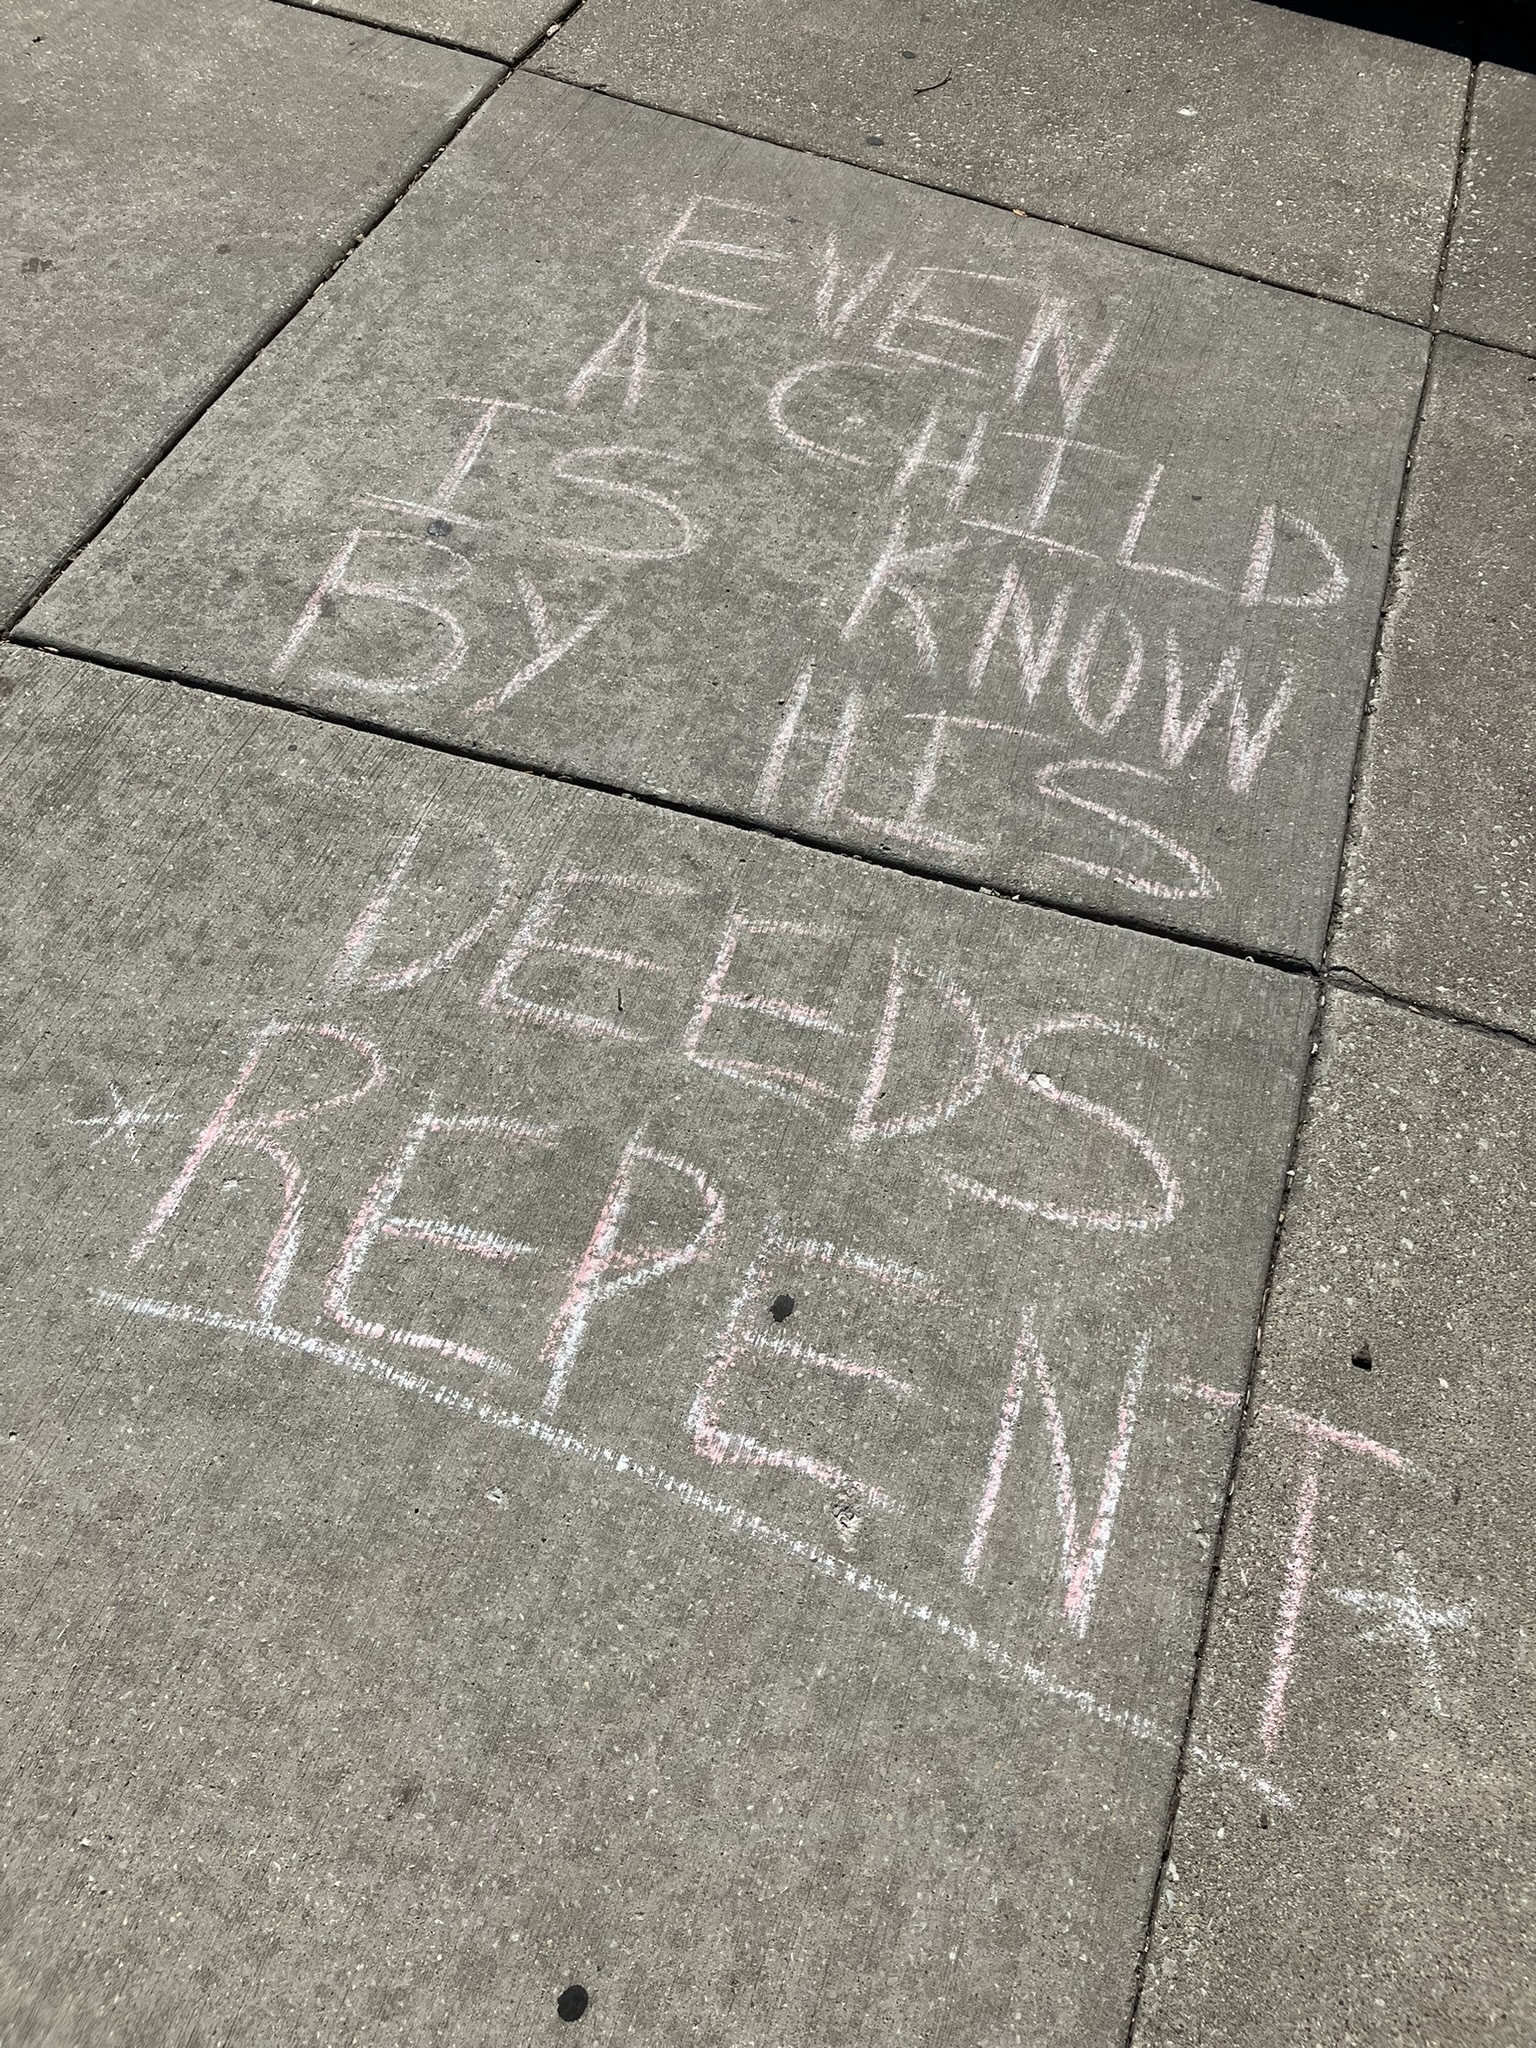 EVEN
A CHILD
IS KNOW
BY HIS
DEEDS
*REPENT*